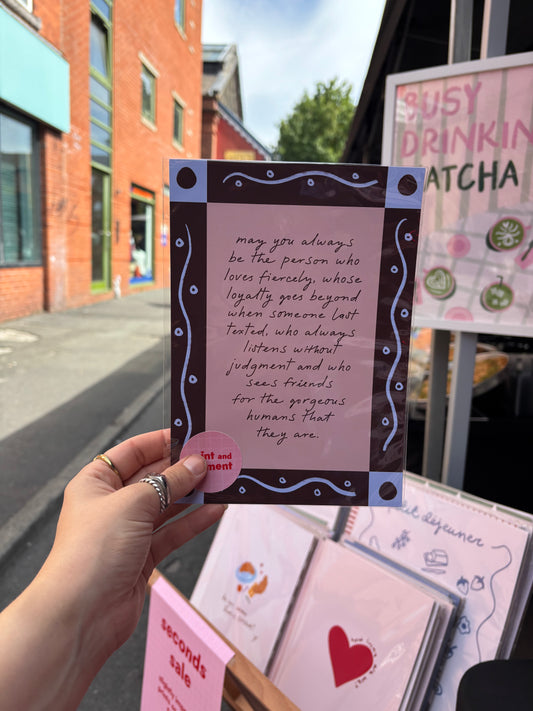 BUSY
DRINKIN
MATCHA
may you always
be the person who
loves fiercely, whose
loyalty goes beyond
when someone last
texted, who always
listens without
judgment and who
sees friends
for the gorgeous
humans that
they are.
int and
ment
dejeuner
seconds
sale